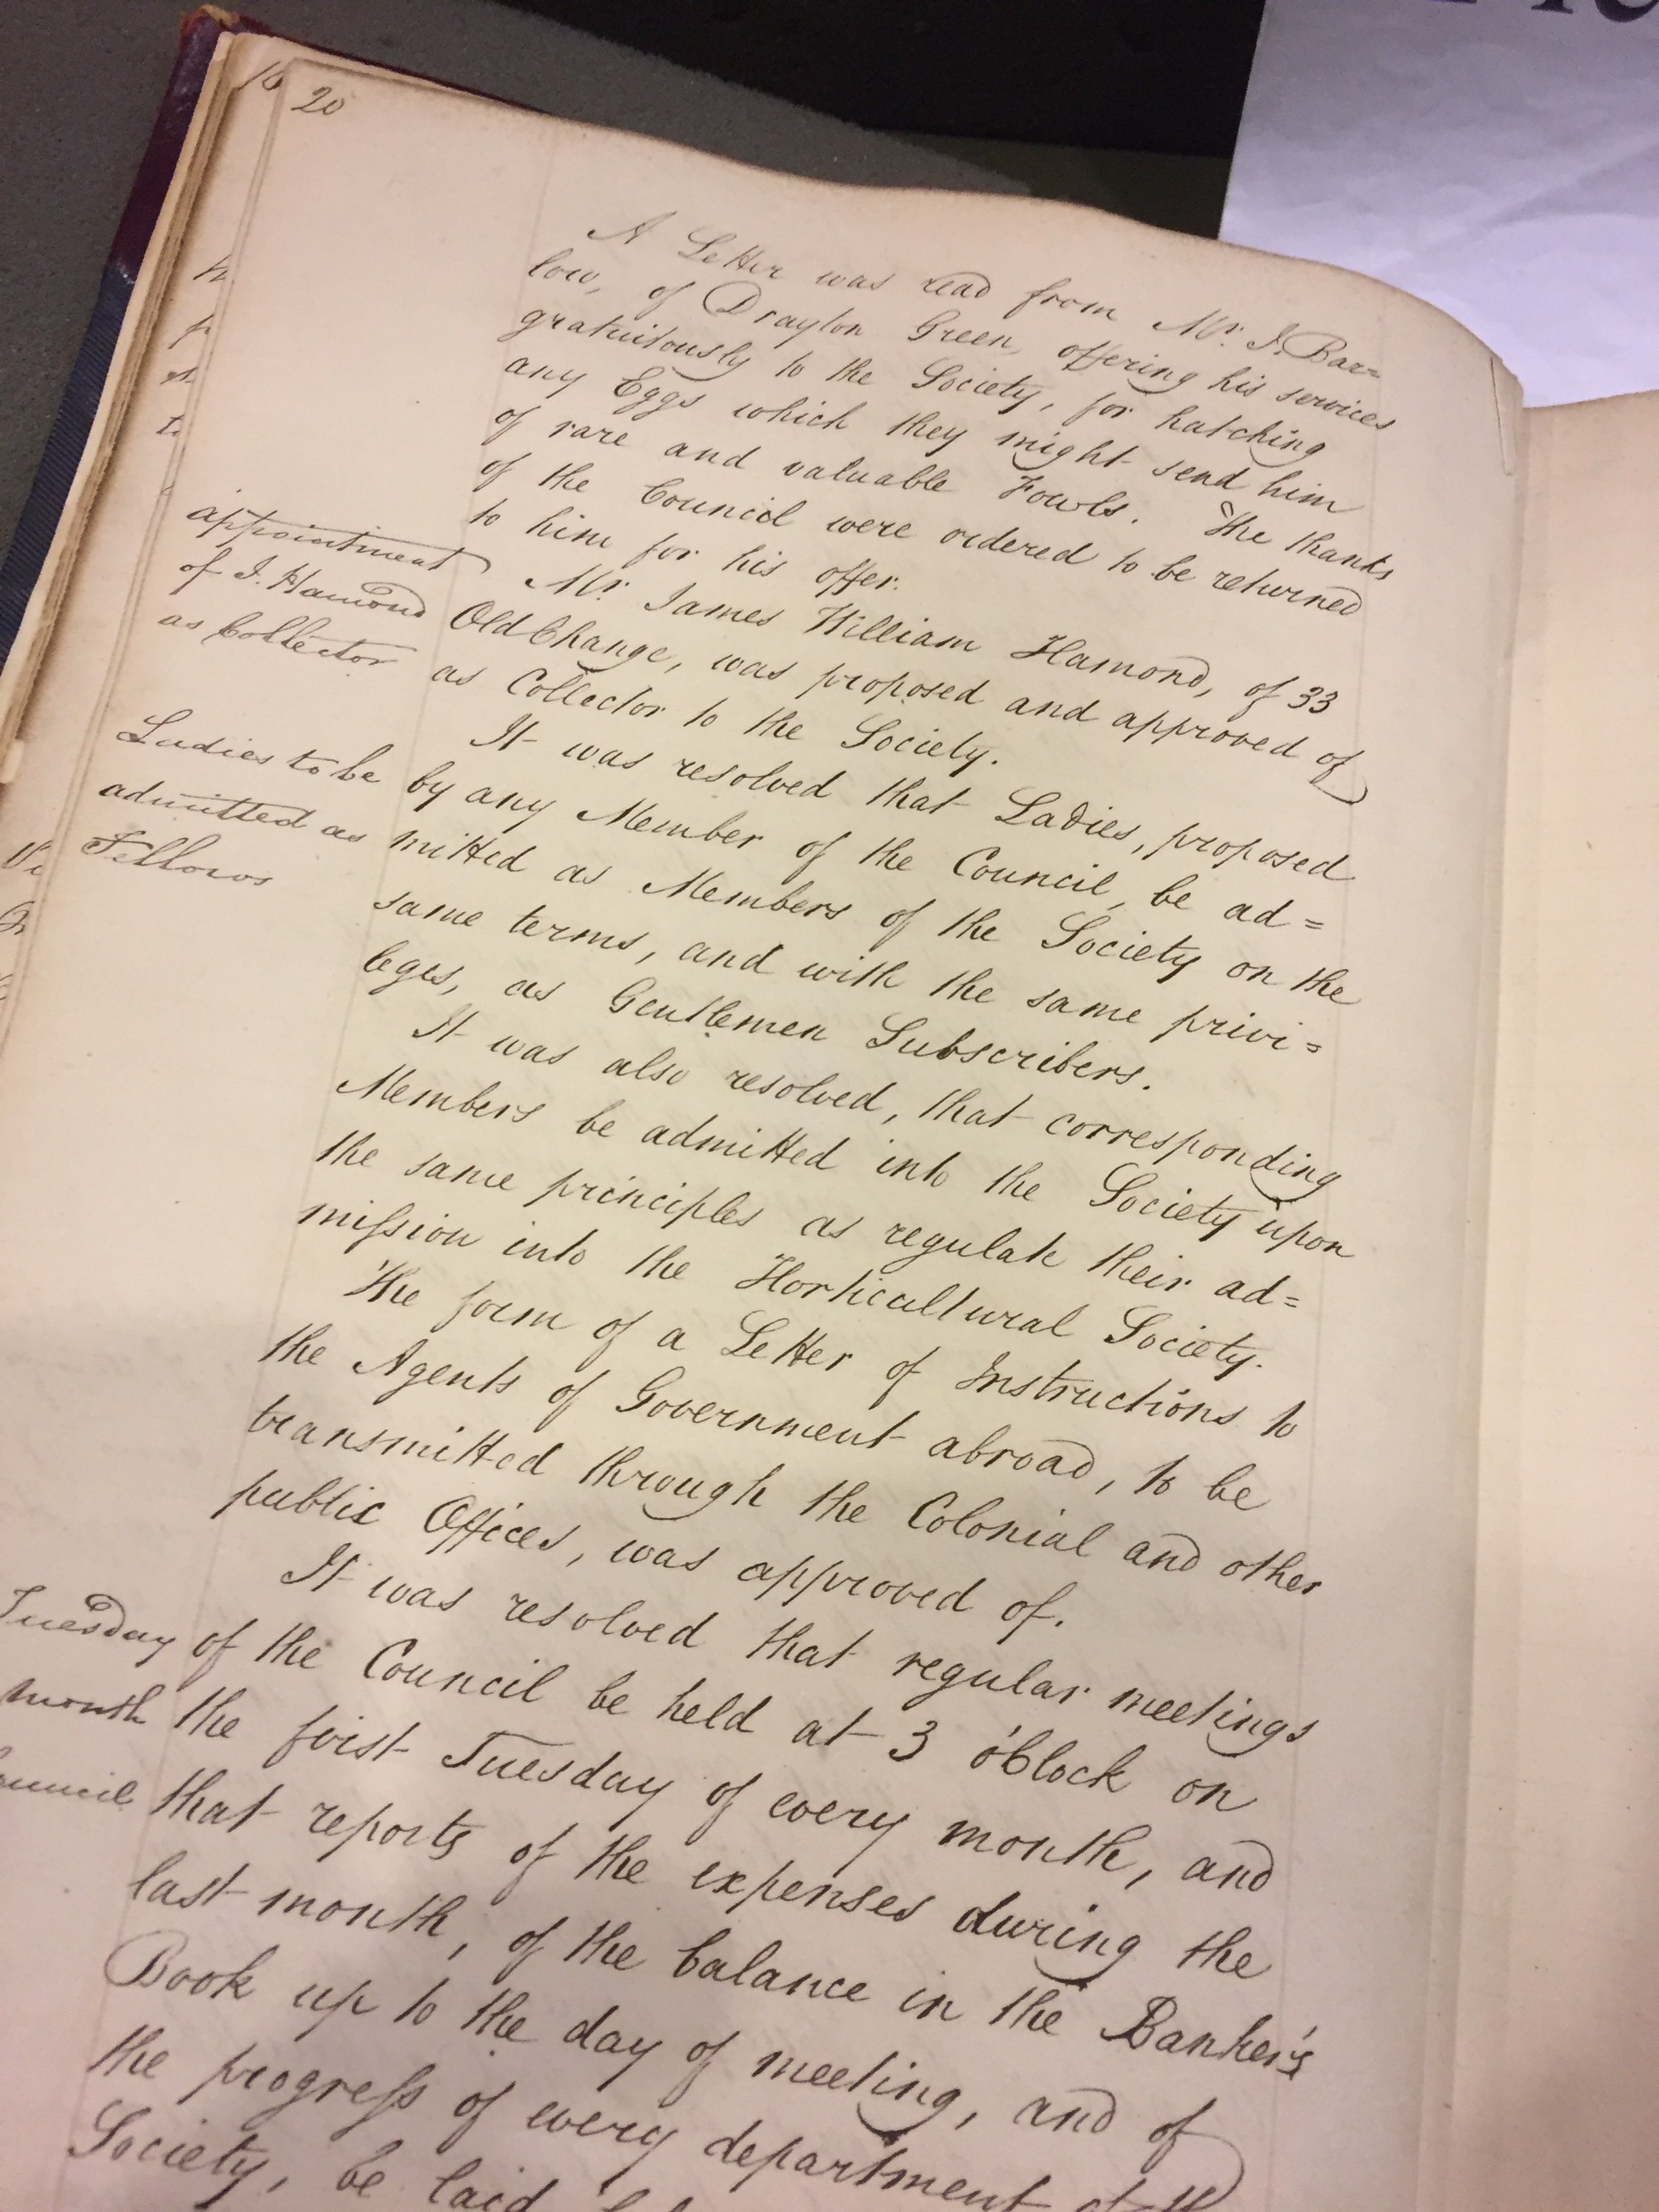 20
A Letter was read from Mr. J. Bar=
low, of Drayton Green, offering his services
gratuitously to the Society, for hatching
any Eggs which they might send him
of rare and valuable Fowls. The thanks
of the Council were ordered to be returned
to him for his offer.
appointment
of J. Hamond
as Collector
Mr. James William Hamond, of 33
Old Change, was proposed and approved of
as Collector to the Society.
Ladies to be
admitted as
Fellows
It was resolved that Ladies, proposed
by any Member of the Council, be ad=
mitted as Members of the Society on the
same terms, and with the same privi=
leges, as Gentlemen Subscribers.
It was also resolved, that corresponding
Members be admitted into the Society upon
the same principles as regulate their ad=
mission into the Horticultural Society.
The form of a Letter of Instructions to
the Agents of Government abroad, to be
transmitted through the Colonial and other
public Offices, was approved of.
Tuesday
month
It was resolved that regular meetings
of the Council be held at 3 o'Clock on
the first Tuesday of every month, and
that reports of the expenses during the
last month, of the balance in the Banker's
Book up to the day of meeting, and of
the progress of every department of the
Society, be laid